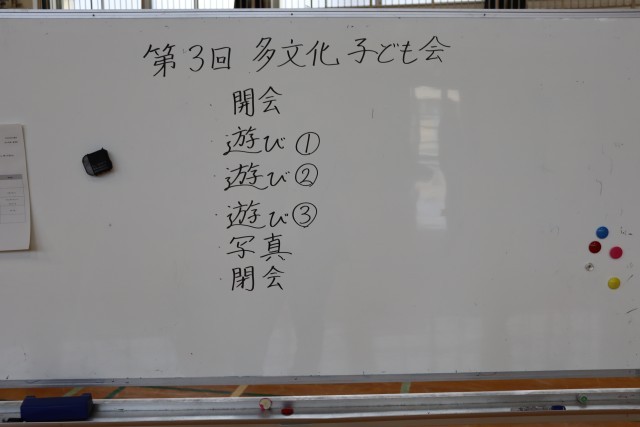 第3回 多文化 子ども会
・開会
・遊び①
・遊び②
・遊び③
・写真
・閉会